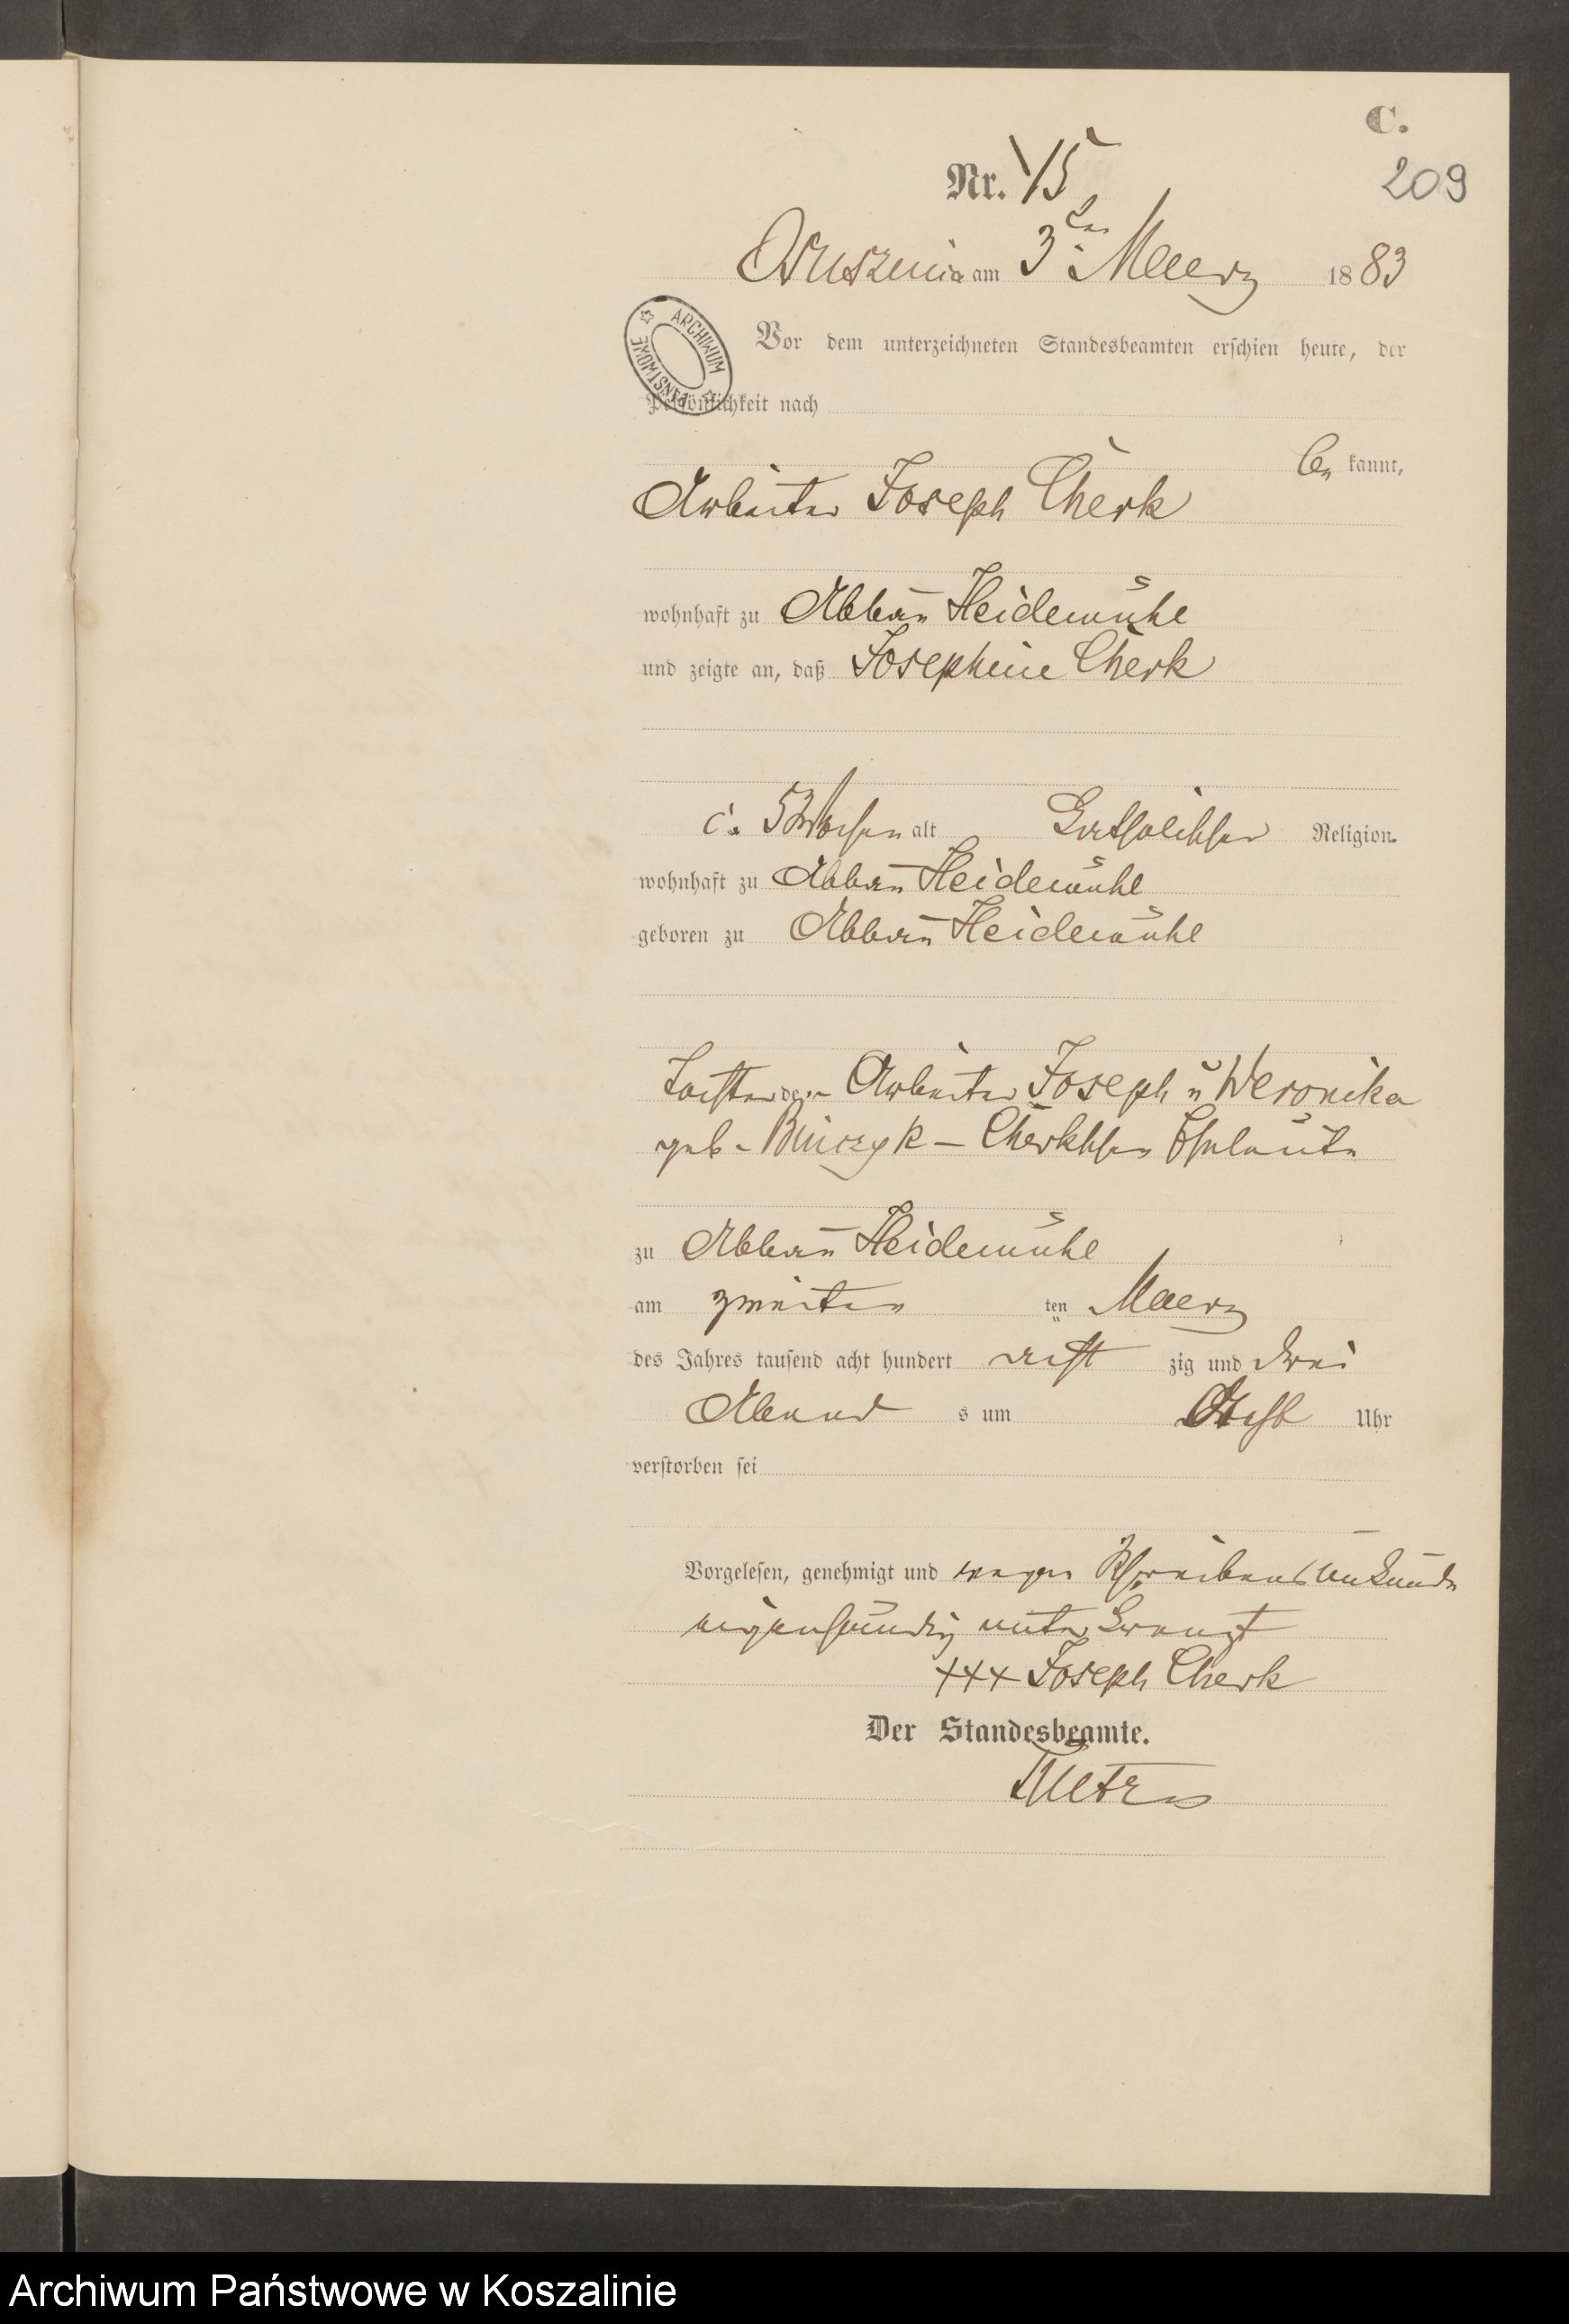 C.
Nr. 15
209
Osuszniza am 3ten Maerz 1883
ARCHIWUM PAŃSTWOWE
Vor dem unterzeichneten Standesbeamten erschien heute, der
Persönlichkeit nach
be kannt,
Arbeiter Joseph Cherk
wohnhaft zu Abbau Heidemühl
und zeigte an, daß Josephine Cherk
5 Wochen alt katholischer Religion
wohnhaft zu Abbau Heidemühl
geboren zu Abbau Heidemühl
Tochter der Arbeiter Joseph u Weronika
geb. Cherkschen Eheleute
zu Abbau Heidemühl
am zweiten ten Maerz
des Jahres tausend acht hundert acht zig und drei
Abend s um Acht Uhr
verstorben sei
Vorgelesen, genehmigt und wegen Schreibensunkunde
eigenhändig unterkreuzt
+++ Joseph Cherk
Der Standesbeamte.
Archiwum Państwowe w Koszalinie